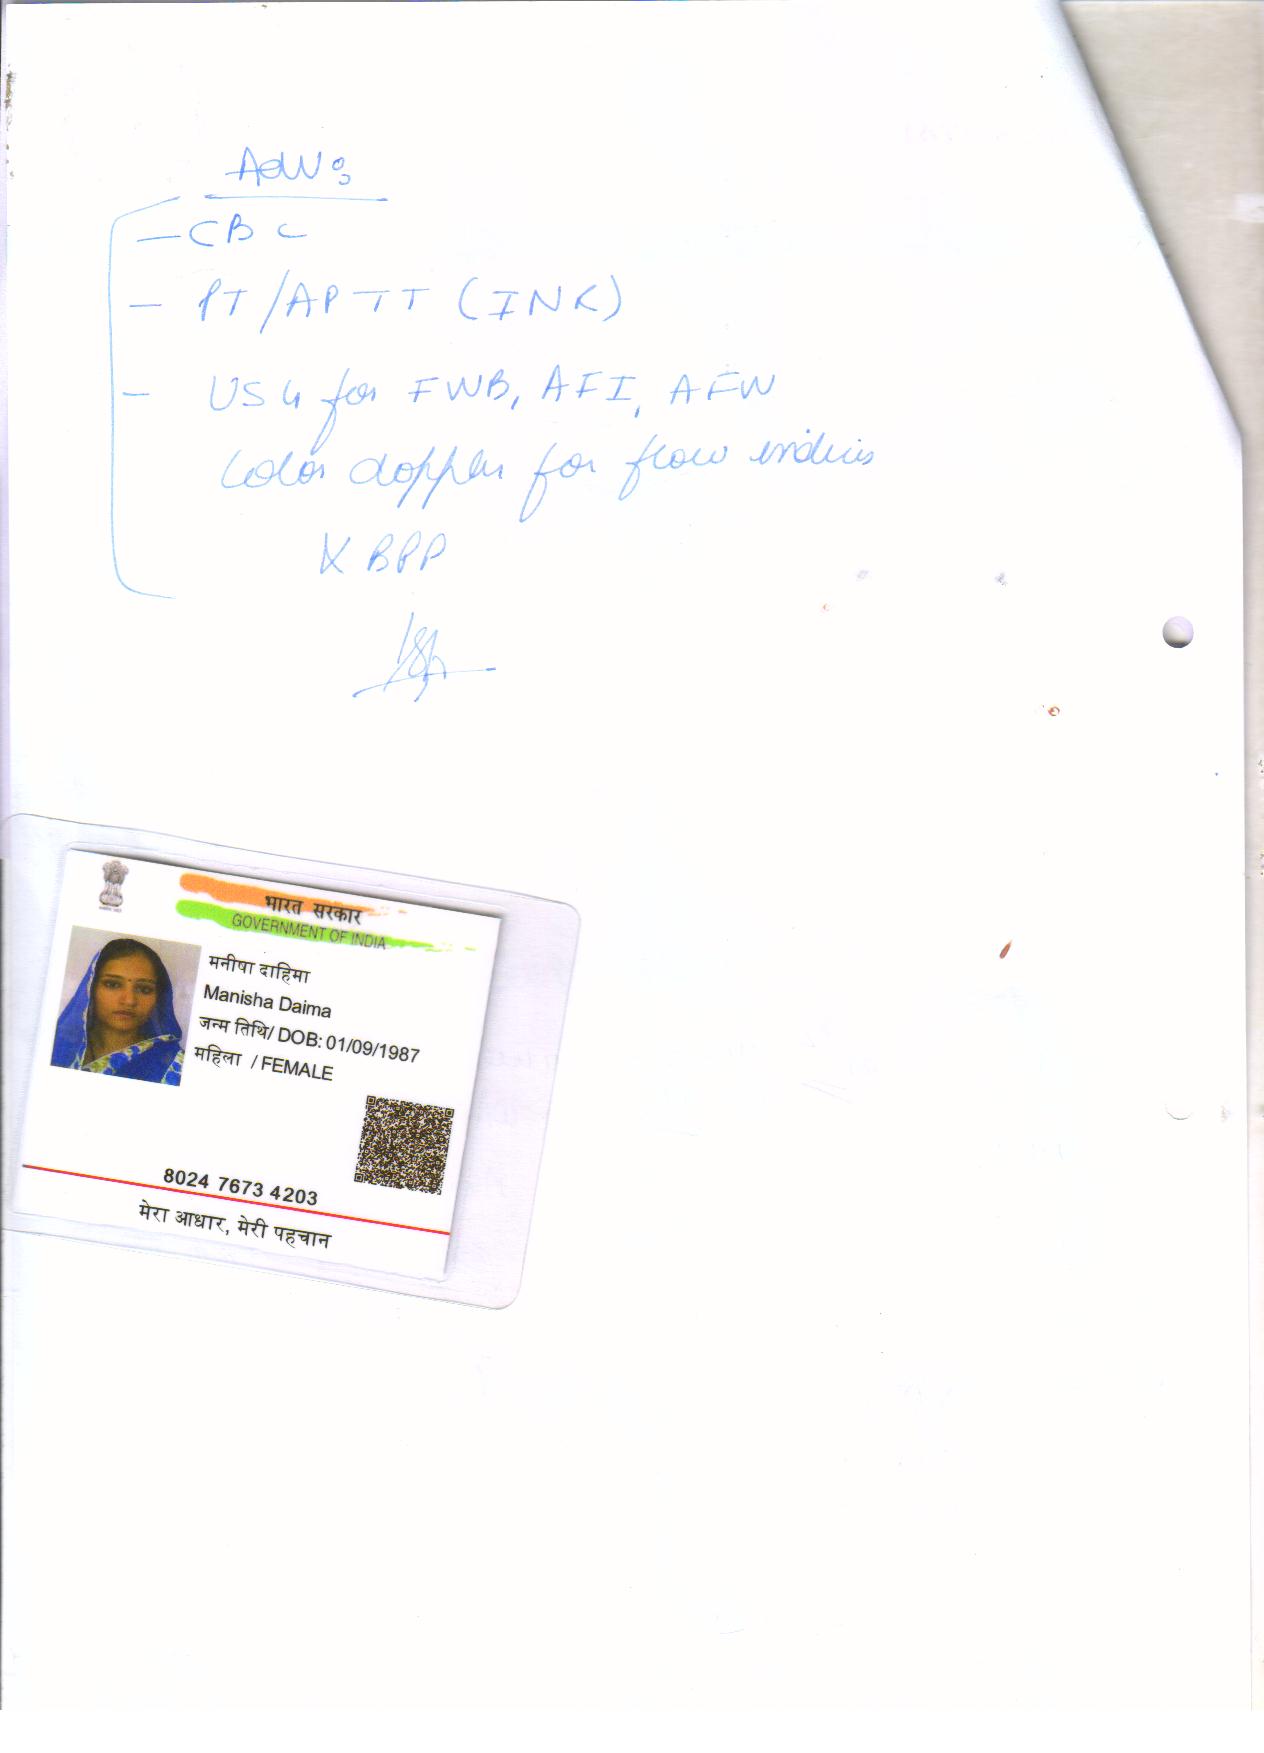 Adv:
- CBC
- PT/APTT (INR)
- USG for FWB, AFI, AFW
Color doppler for flow indices
& BPP
भारत सरकार
GOVERNMENT OF INDIA
मनीषा दाहिमा
Manisha Daima
जन्म तिथि/ DOB: 01/09/1987
महिला / FEMALE
8024 7673 4203
मेरा आधार, मेरी पहचान